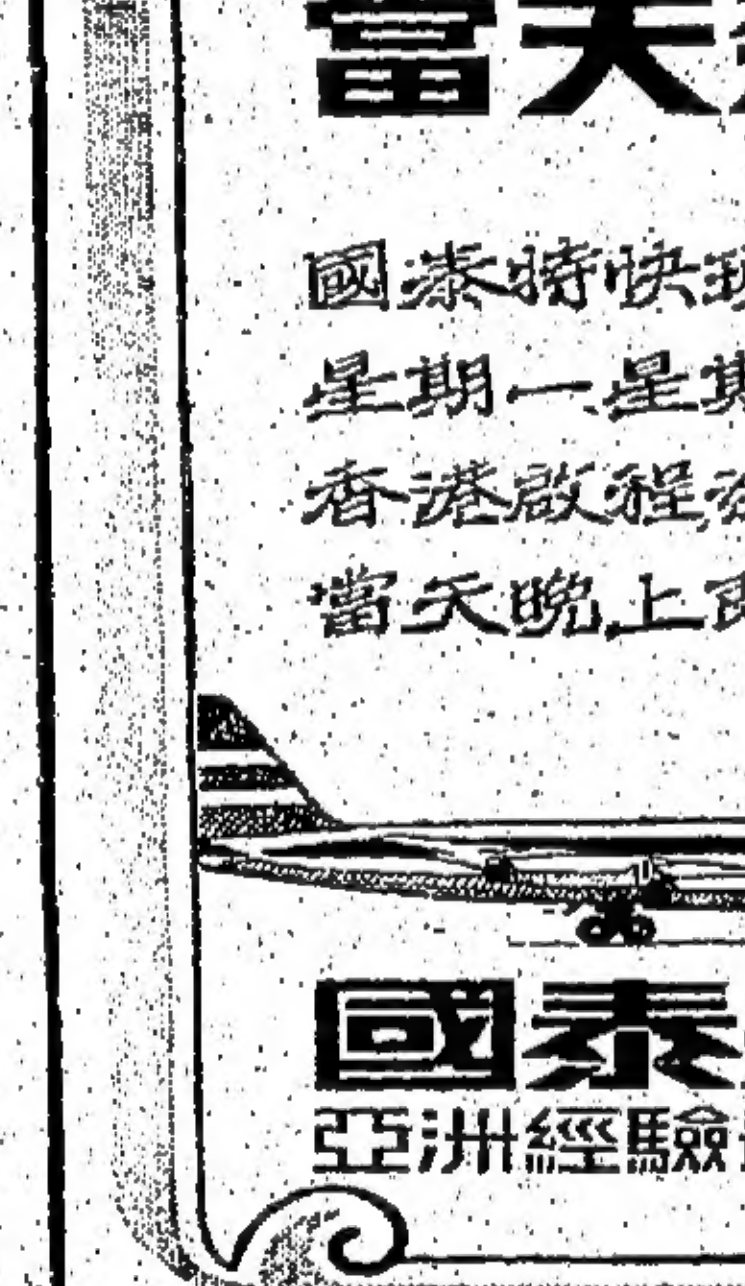 當天
國泰特快
星期一星期
香港啟程
當天晚上
國泰
亞洲經驗